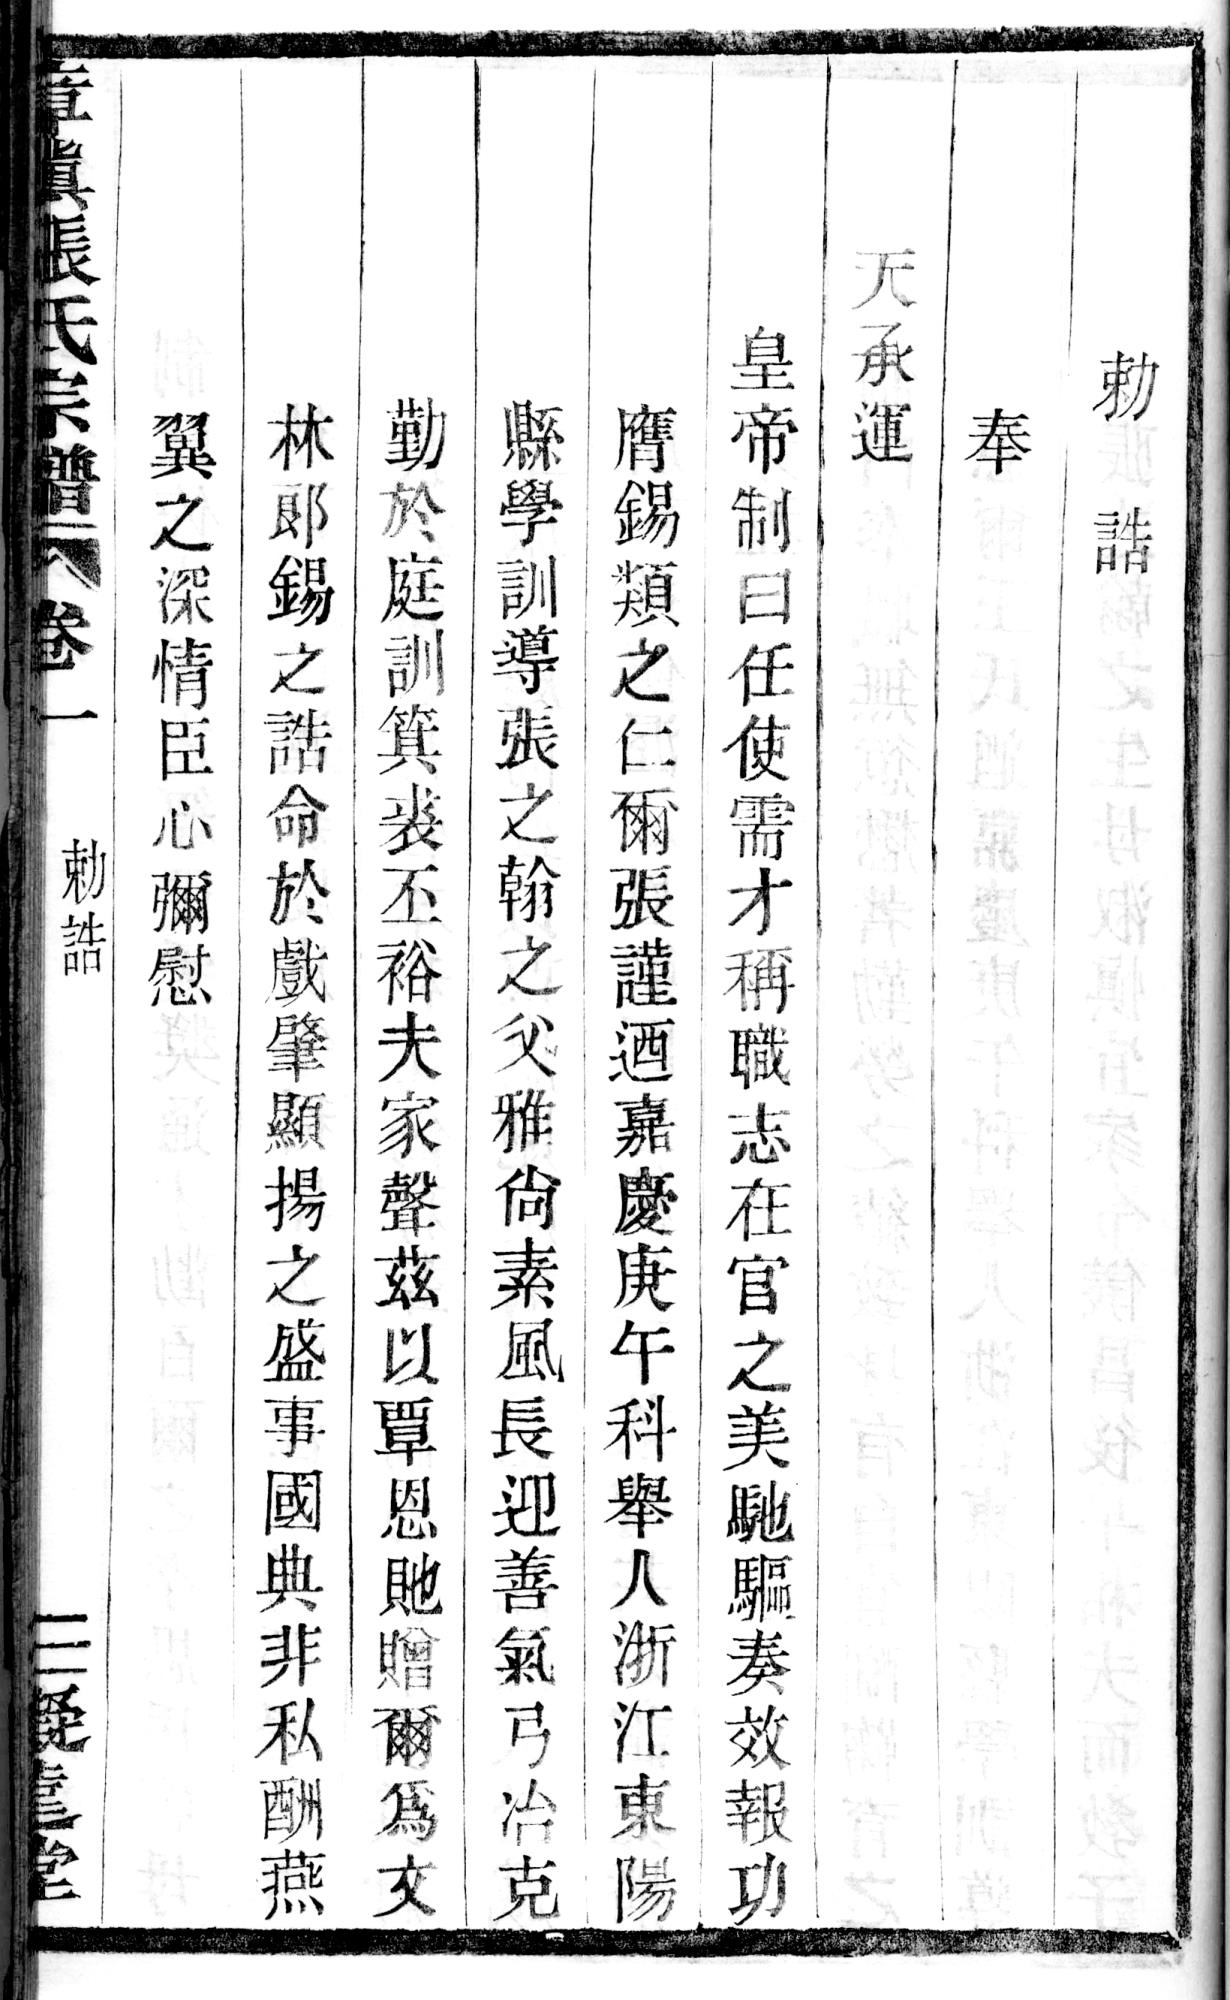 勅誥
奉
天承運
皇帝制曰任使需才稱職志在官之美馳驅奏效報功
膺錫類之仁爾張謹迺嘉慶庚午科舉人浙江東陽
縣學訓導張之翰之父雅尙素風長迎善氣弓冶克
勤於庭訓箕裘丕裕夫家聲茲以覃恩貤贈爾爲文
林郎錫之誥命於戲肇顯揚之盛事國典非私酬燕
翼之深情臣心彌慰
章鎮張氏宗譜 卷一 勅誥 三 凝臺堂